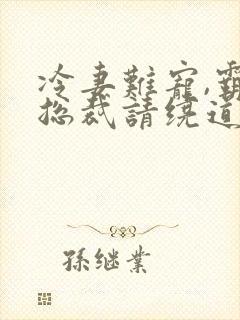 冷妻難寵,霸
捴裁請绕道
孫继業